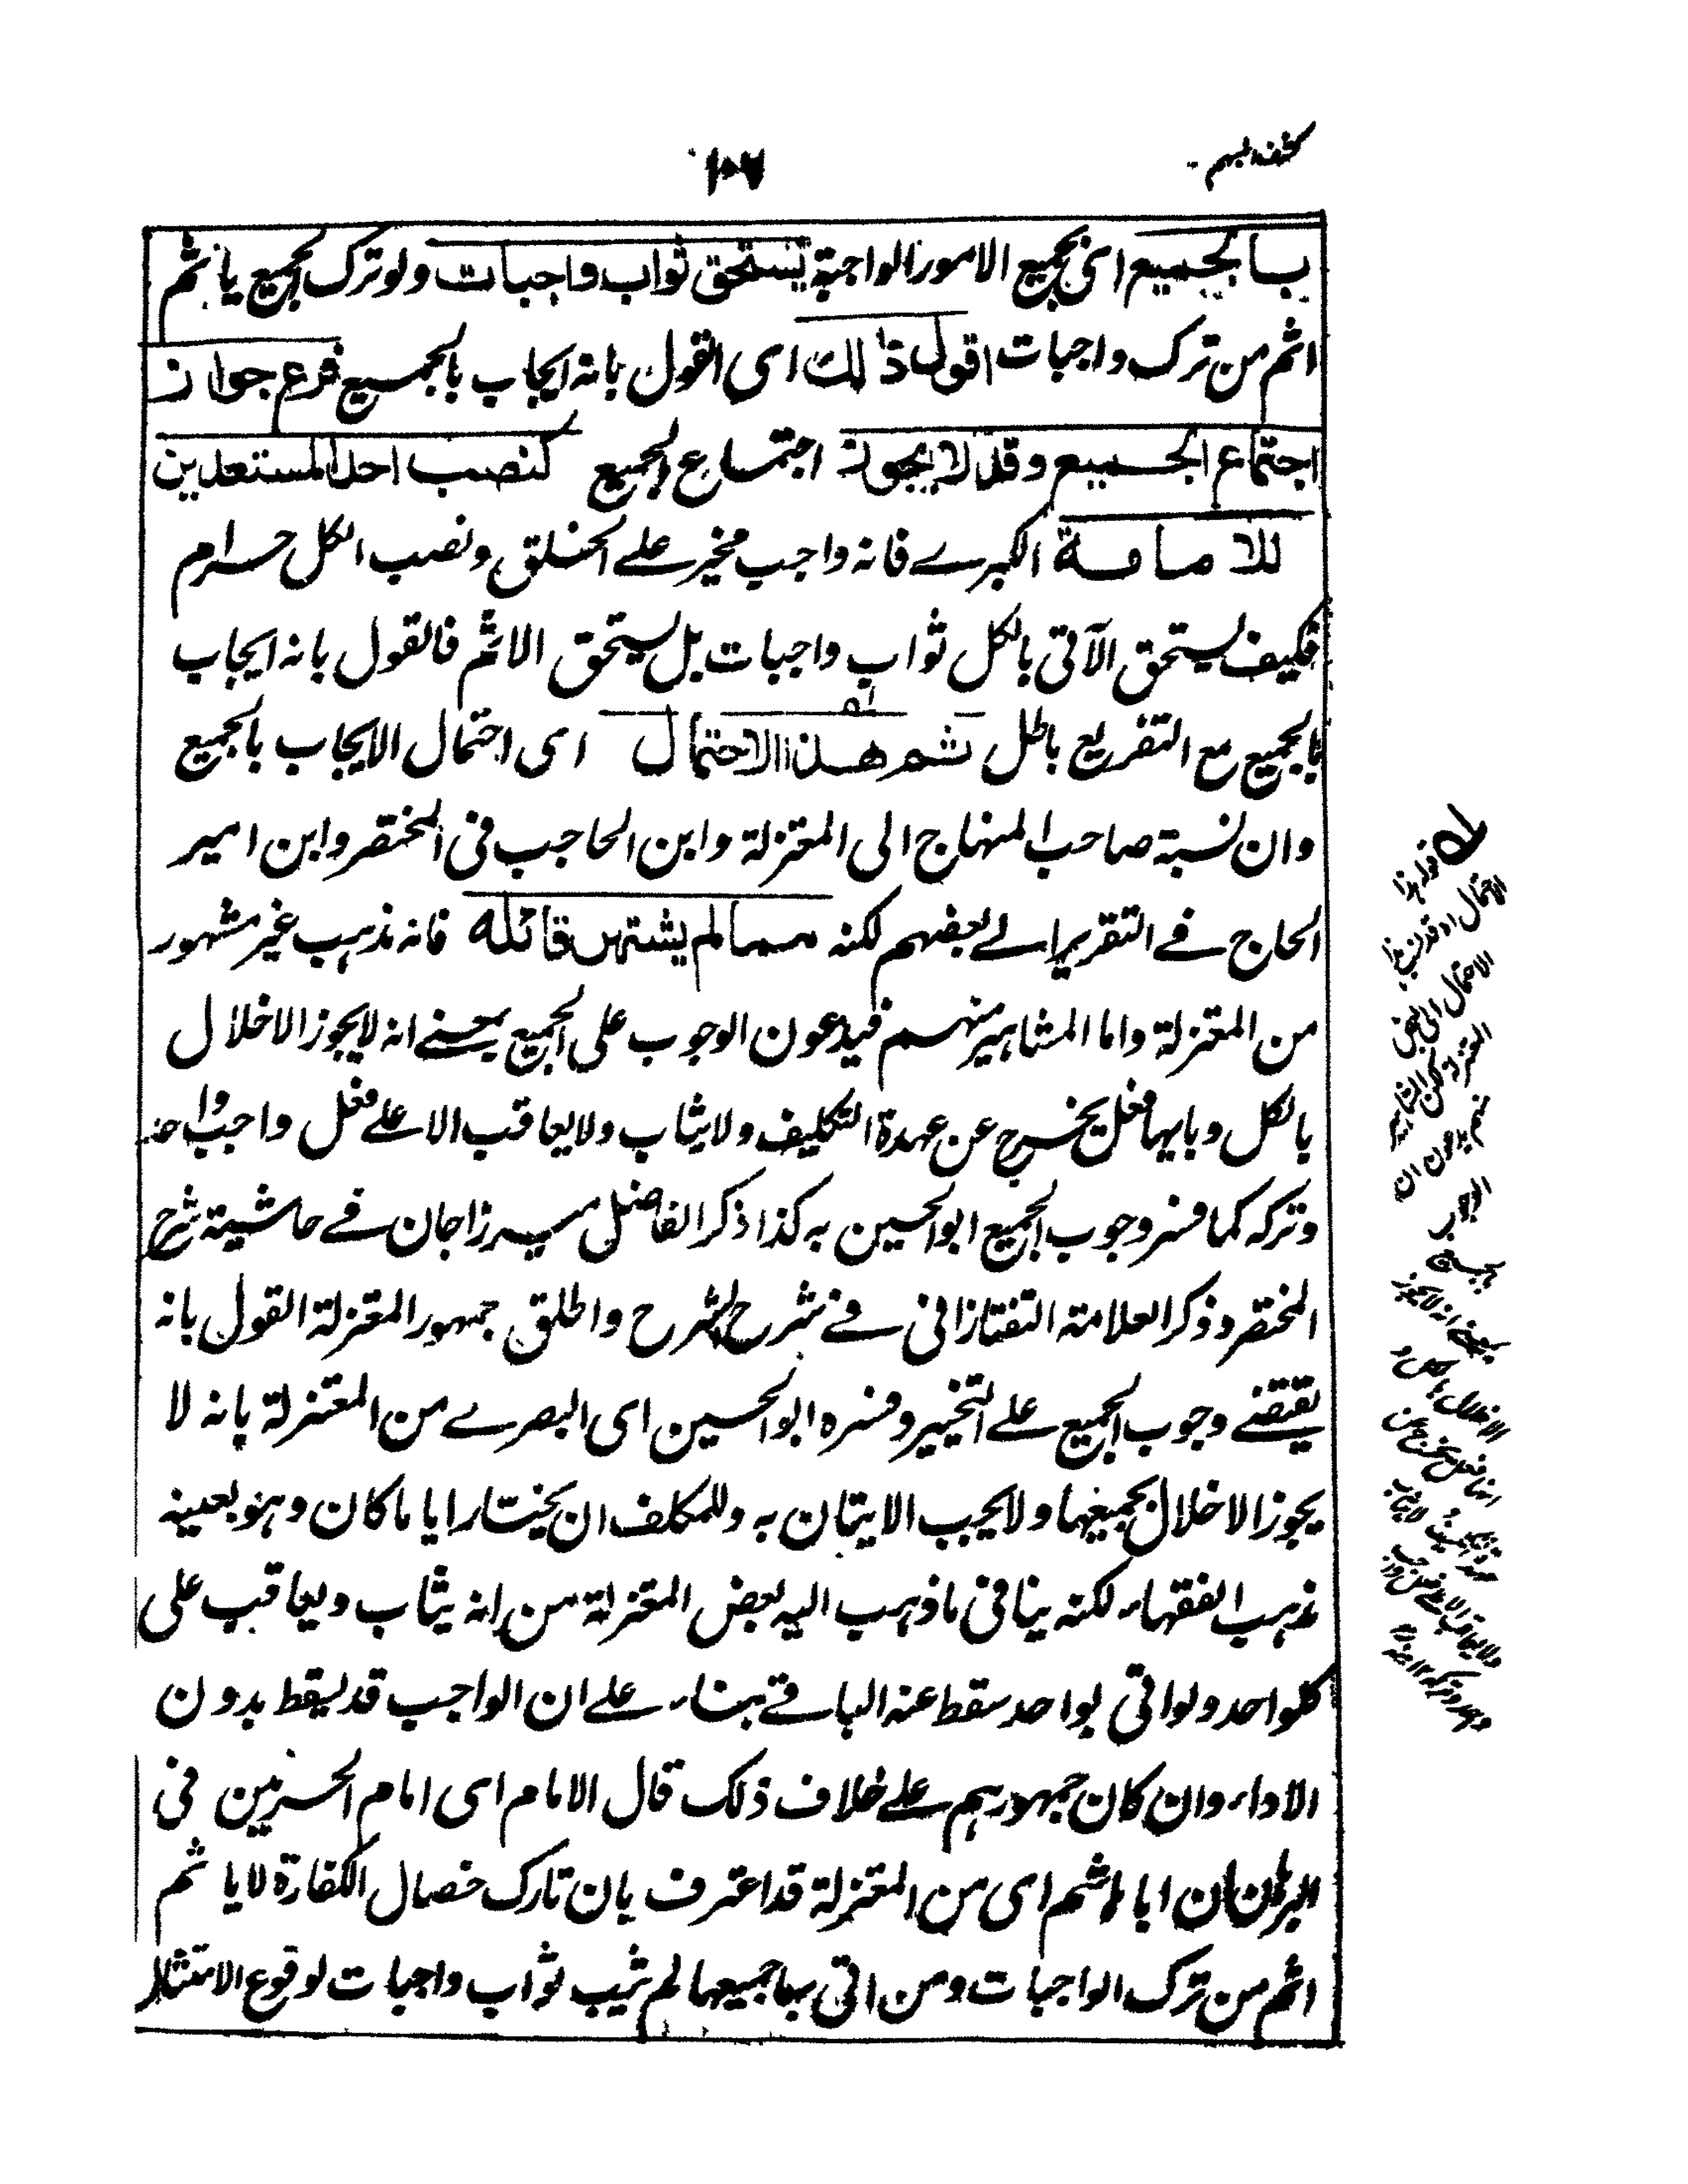 كشف المبهم
١٠٧
بالجميع اى بجميع الامور الواجبة يستحق ثواب واجبات ولو ترك الجميع ياثم
اثم من ترك واجبات اقول ذلك اى القول بانه ايجاب بالجميع فرع جواز
اجتماع الجميع وقد لا يجوز اجتماع الجميع كنصب احد المستعدين
للامامة الكبرے فانه واجب مخير علے الخلق ونصب الكل حرام
فكيف يستحق الآتى بالكل ثواب واجبات بل يستحق الاثم فالقول بانه ايجاب
بالجميع مع التفريع باطل ثم هذا الاحتمال اى احتمال الايجاب بالجميع
وان نسبة صاحب المنهاج الى المعتزلة وابن الحاجب فى المختصر وابن امير
الحاج فے التقرير الے بعضهم لكنه مما لم يشتهر قائله فانه مذهب غير مشهور
من المعتزلة واما المشاهير منهم فيدعون الوجوب على الجميع بمعنے انه لا يجوز الاخلال
بالكل وبايها فعل يخرج عن عهدة التكليف ولا يثاب ولا يعاقب الا علے فعل واجب واحد
وتركه كما فسر وجوب الجميع ابو الحسين به كذا ذكر الفاضل ميرزاجان فے حاشية شرح
المختصر وذكر العلامة التفتازانى فے شرح الشرح واطلق جمهور المعتزلة القول بانه
يقتضے وجوب الجميع علے التخيير وفسره ابو الحسين اى البصرے من المعتزلة بانه لا
يجوز الاخلال بجميعها ولا يجب الايتان به وللمكلف ان يختار ايا ما كان وهو بعينه
مذهب الفقهاء لكنه ينافى ما ذهب اليه بعض المعتزلة من انه يثاب ويعاقب على
كلواحد ولو اتى بواحد سقط عنه الباقے بناء علے ان الواجب قد يسقط بدون
الاداء وان كان جمهورهم علے خلاف ذلك قال الامام اى امام الحرمين فى
البرهان ان ابا هاشم اى من المعتزلة قد اعترف بان تارك خصال الكفارة لا ياثم
اثم من ترك الواجبات ومن اتى بها جميعها لم يثب ثواب واجبات لوقوع الامتثال
قوله هذا
الاحتمال
الاحتمال الى بعض
المعتزلة لكن المشاهير
منهم يدعون ان
الوجوب
بالجميع
بمعنے انه لا يجوز
الاخلال بالكل و